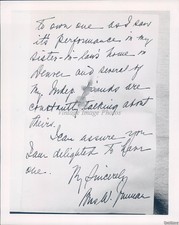 To own one as I saw
its performance in my
Sister-in-law's home in
Denver and several of
my friends are
constantly talking about
theirs.
I can assure you
I am delighted to have
one.
Sincerely
Mrs W.